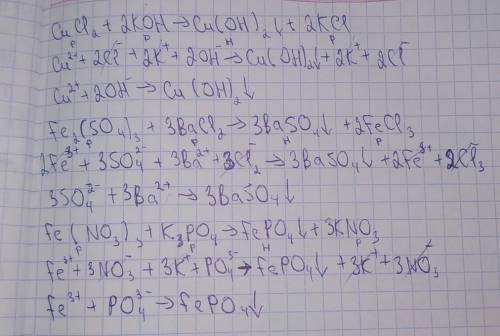 CuCl₂ + 2KOH → Cu(OH)₂↓ + 2KCl
р р н р
Cu²⁺ + 2Cl⁻ + 2K⁺ + 2OH⁻ → Cu(OH)₂↓ + 2K⁺ + 2Cl⁻
Cu²⁺ + 2OH⁻ → Cu(OH)₂↓
Fe₂(SO₄)₃ + 3BaCl₂ → 3BaSO₄↓ + 2FeCl₃
р р н р
2Fe³⁺ + 3SO₄²⁻ + 3Ba²⁺ + 3Cl₂⁻ → 3BaSO₄↓ + 2Fe³⁺ + 2Cl₃⁻
3SO₄²⁻ + 3Ba²⁺ → 3BaSO₄↓
Fe(NO₃)₃ + K₃PO₄ → FePO₄↓ + 3KNO₃
р р н р
Fe³⁺ + 3NO₃⁻ + 3K⁺ + PO₄³⁻ → FePO₄↓ + 3K⁺ + 3NO₃⁻
Fe³⁺ + PO₄³⁻ → FePO₄↓